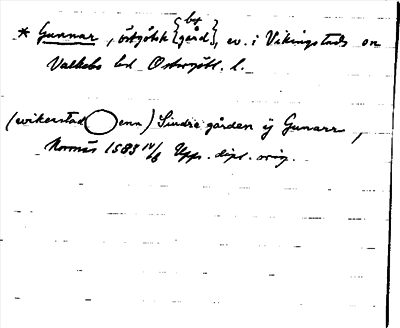 * Gunnar, östgötsk {by} {gård}, ev. i Vikingstads
Valkebo hd Östergötl. l.
(wikerstad ena) Sindre gården ÿ Gunarr,
1585 IV/6 Upps. dipl. orig.